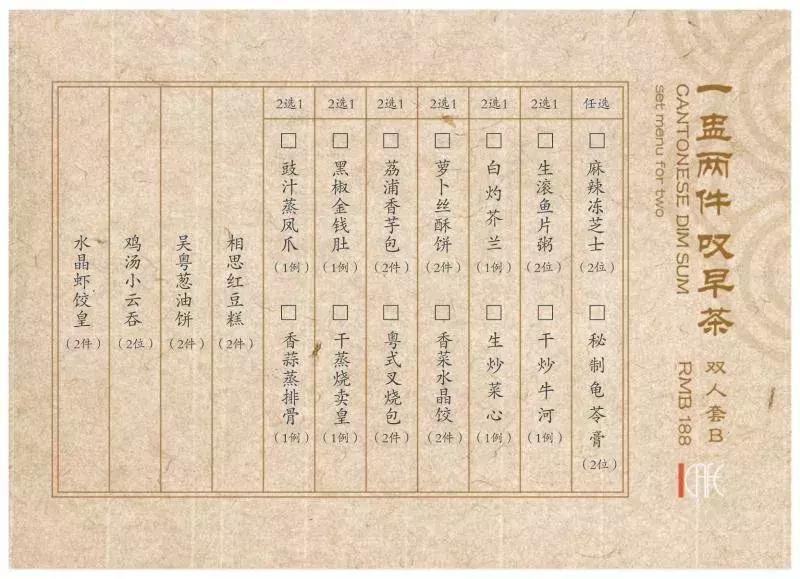 一盅两件叹早茶
双人套B
CANTONESE DIM SUM
RMB 188
set menu for two
任选
麻辣冻芝士(2位)
秘制龟苓膏(2位)
2选1
生滚鱼片粥(2位)
干炒牛河(1例)
2选1
白灼芥兰(1例)
生炒菜心(1例)
2选1
萝卜丝酥饼(2件)
香菜水晶饺(2件)
2选1
荔浦香芋包(2件)
粤式叉烧包(2件)
2选1
黑椒金钱肚(1例)
干蒸烧卖皇(1例)
2选1
豉汁蒸凤爪(1例)
香蒜蒸排骨(1例)
相思红豆糕(2件)
吴粤葱油饼(2件)
鸡汤小云吞(2位)
水晶虾饺皇(2件)